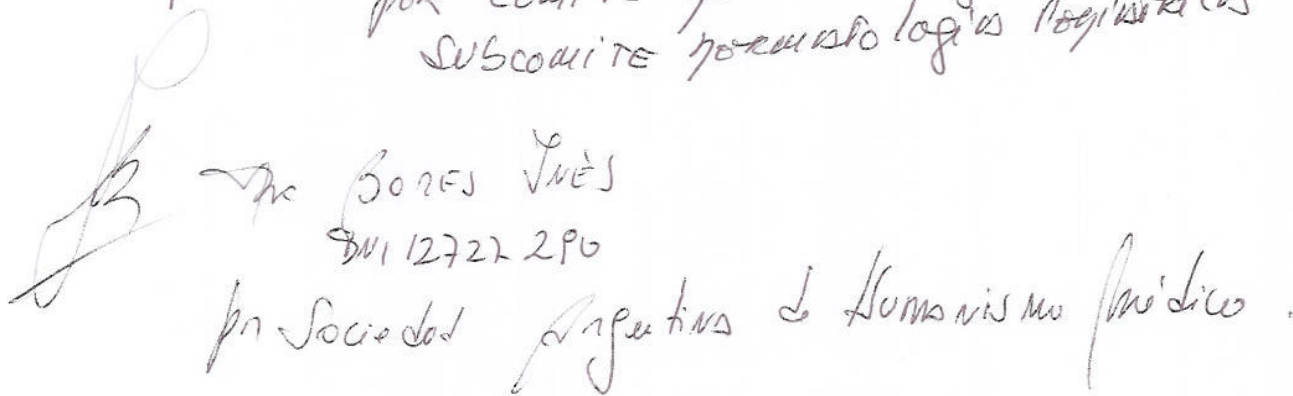 por COMITE
SUBCOMITE
Dra BORES INÈS
DNI 12722290
por Sociedad Argentina de Humanismo Médico.